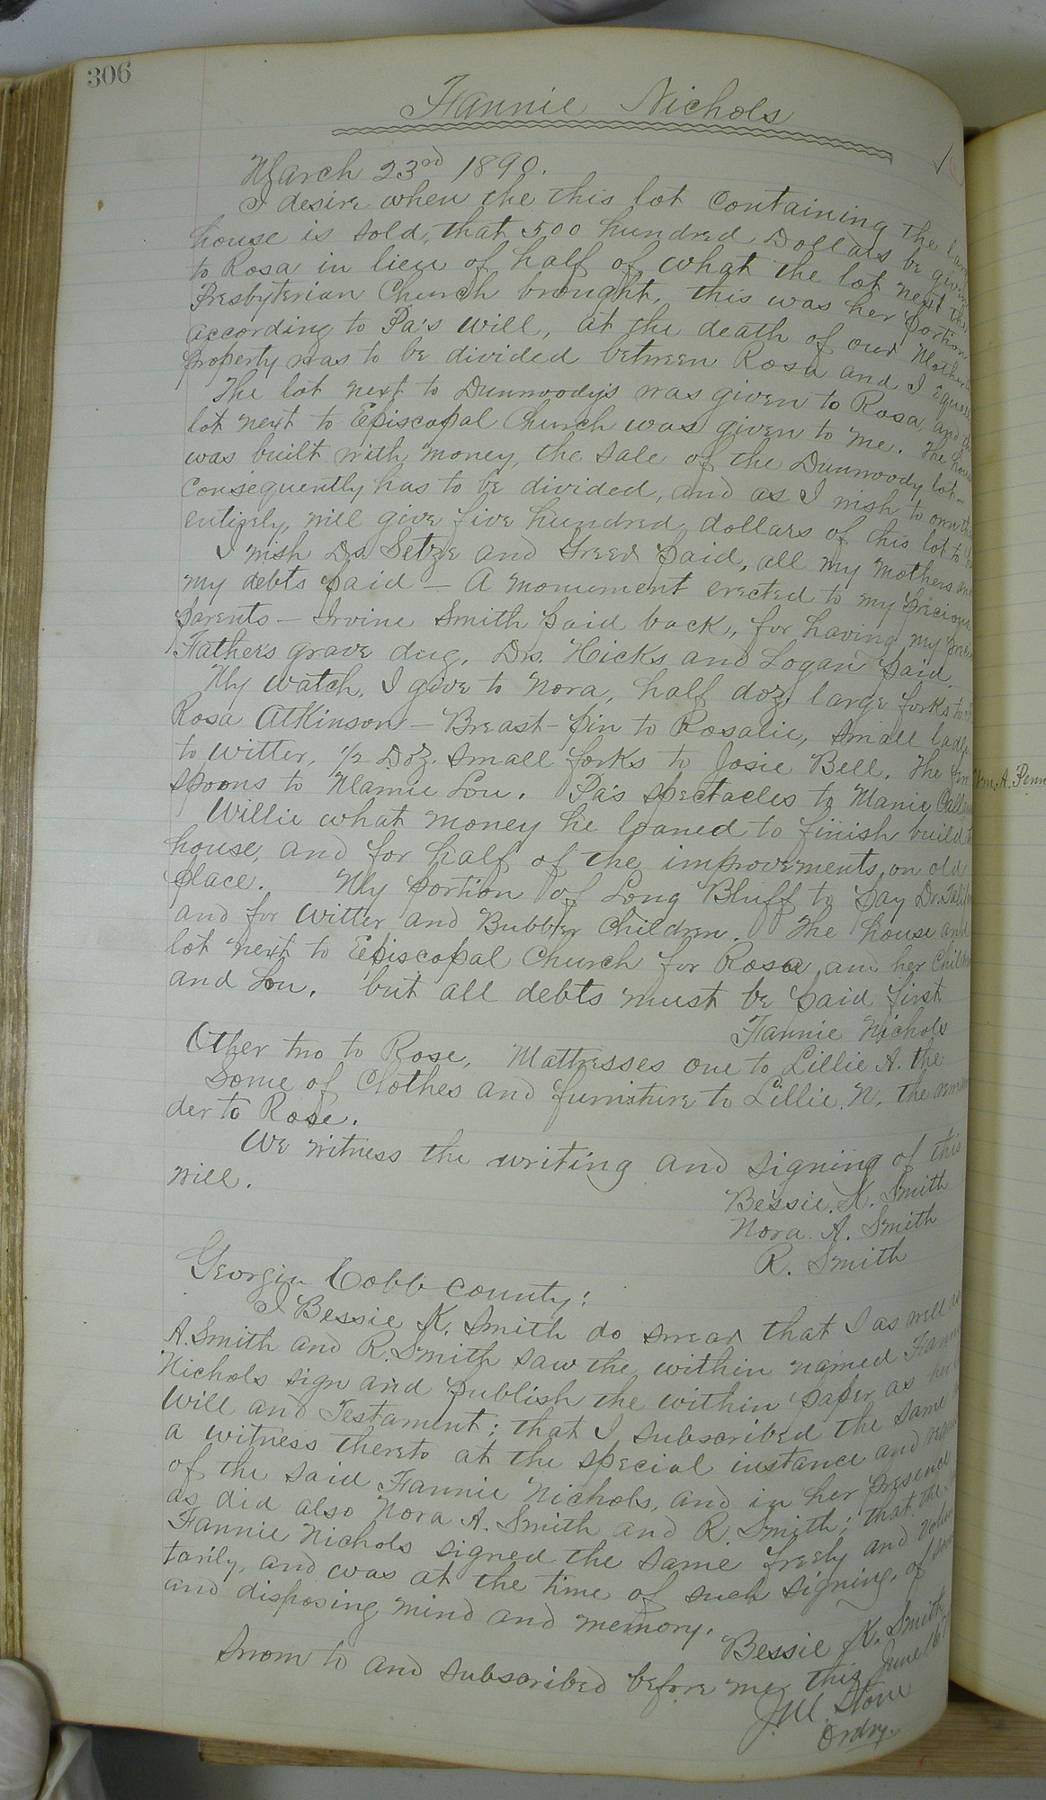 306
Fannie Nichols
March 23rd 1890.
I desire when the this lot containing the
house is sold, that 500 hundred Dollars be given
to Rosa in lieu of half of what the lot next the
Presbyterian Church brought, this was her portion
according to Pa's will, at the death of our Mother
property was to be divided between Rosa and I equally
The lot next to Dunwoody's was given to Rosa, and the
lot next to Episcopal Church was given to me. The house
was built with money, the sale of the Dunwoody lot
Consequently has to be divided, and as I wish to own
entirely, will give five hundred dollars of this lot to
I wish Drs Setze and Greer paid, all my Mothers and
my debts paid — A monument erected to my precious
parents — Irvine Smith paid back, for having my
Fathers grave dug. Drs. Hicks and Logan paid.
My watch, I give to Nora, half doz. large forks to
Rosa Atkinson — Breast-pin to Rosalie, small ladle
to Witter, 1/2 Doz. small forks to Josie Bell. The
spoons to Mamie Lou. Pa's spectacles to Manie
Willie what money he loaned to finish build
house, and for half of the improvements, on old
place. My portion of Long Bluff to pay Dr.
and for Witter and Bubber Children. The house and
lot next to Episcopal Church for Rosa and her Children
and Lou. but all debts must be paid first
Fannie Nichols
Other two to Rose, Mattresses one to Lillie A. the
Some of Clothes and furniture to Lillie. N. the
der to Rose.
We witness the writing and signing of this
will.
Bessie. K. Smith
Nora. A. Smith
R. Smith
Georgia Cobb County:
I Bessie K. Smith do swear that I as well
A. Smith and R. Smith saw the within named Fannie
Nichols sign and publish the within paper as her
Will and Testament; that I subscribed the same
a witness thereto at the special instance and
of the said Fannie Nichols, and in her presence
as did also Nora A. Smith and R. Smith; that the
Fannie Nichols signed the same freely and volun
tarily, and was at the time of such signing, of
and disposing mind and memory.
Bessie K. Smith
Sworn to and subscribed before me this June 16
J. M. Stone
Ordry.